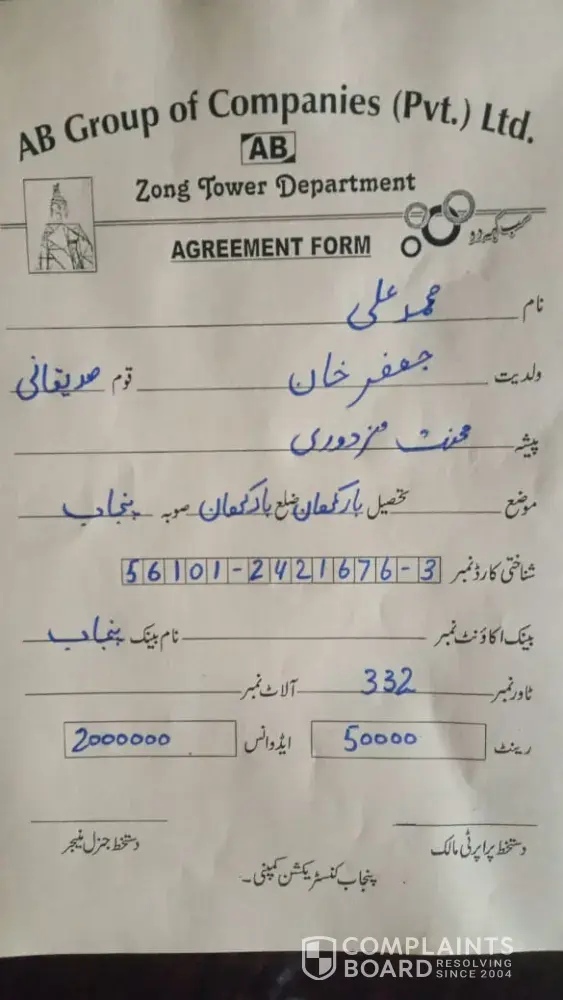 AB Group of Companies (Pvt.) Ltd.
AB
Zong Tower Department
AGREEMENT FORM
سب کہہ دو
نام محمد علی
ولدیت جعفر خان قوم صدیقانی
پیشہ محنت مزدوری
موضع تحصیل بارکھان ضلع بارکھان صوبہ پنجاب
شناختی کارڈ نمبر 56101-2421676-3
بینک اکاؤنٹ نمبر نام بینک پنجاب
ٹاور نمبر 332 آلاٹ نمبر
رینٹ 50000 ایڈوانس 2000000
دستخط پراپرٹی مالک دستخط جنرل منیجر
پنجاب کنسٹریکشن کمپنی۔
COMPLAINTS
BOARD RESOLVING
SINCE 2004